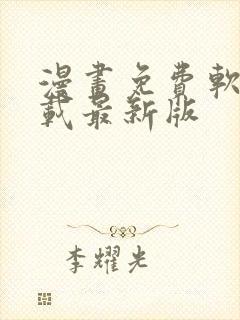 漫畫免費軟
載最新版
李耀光